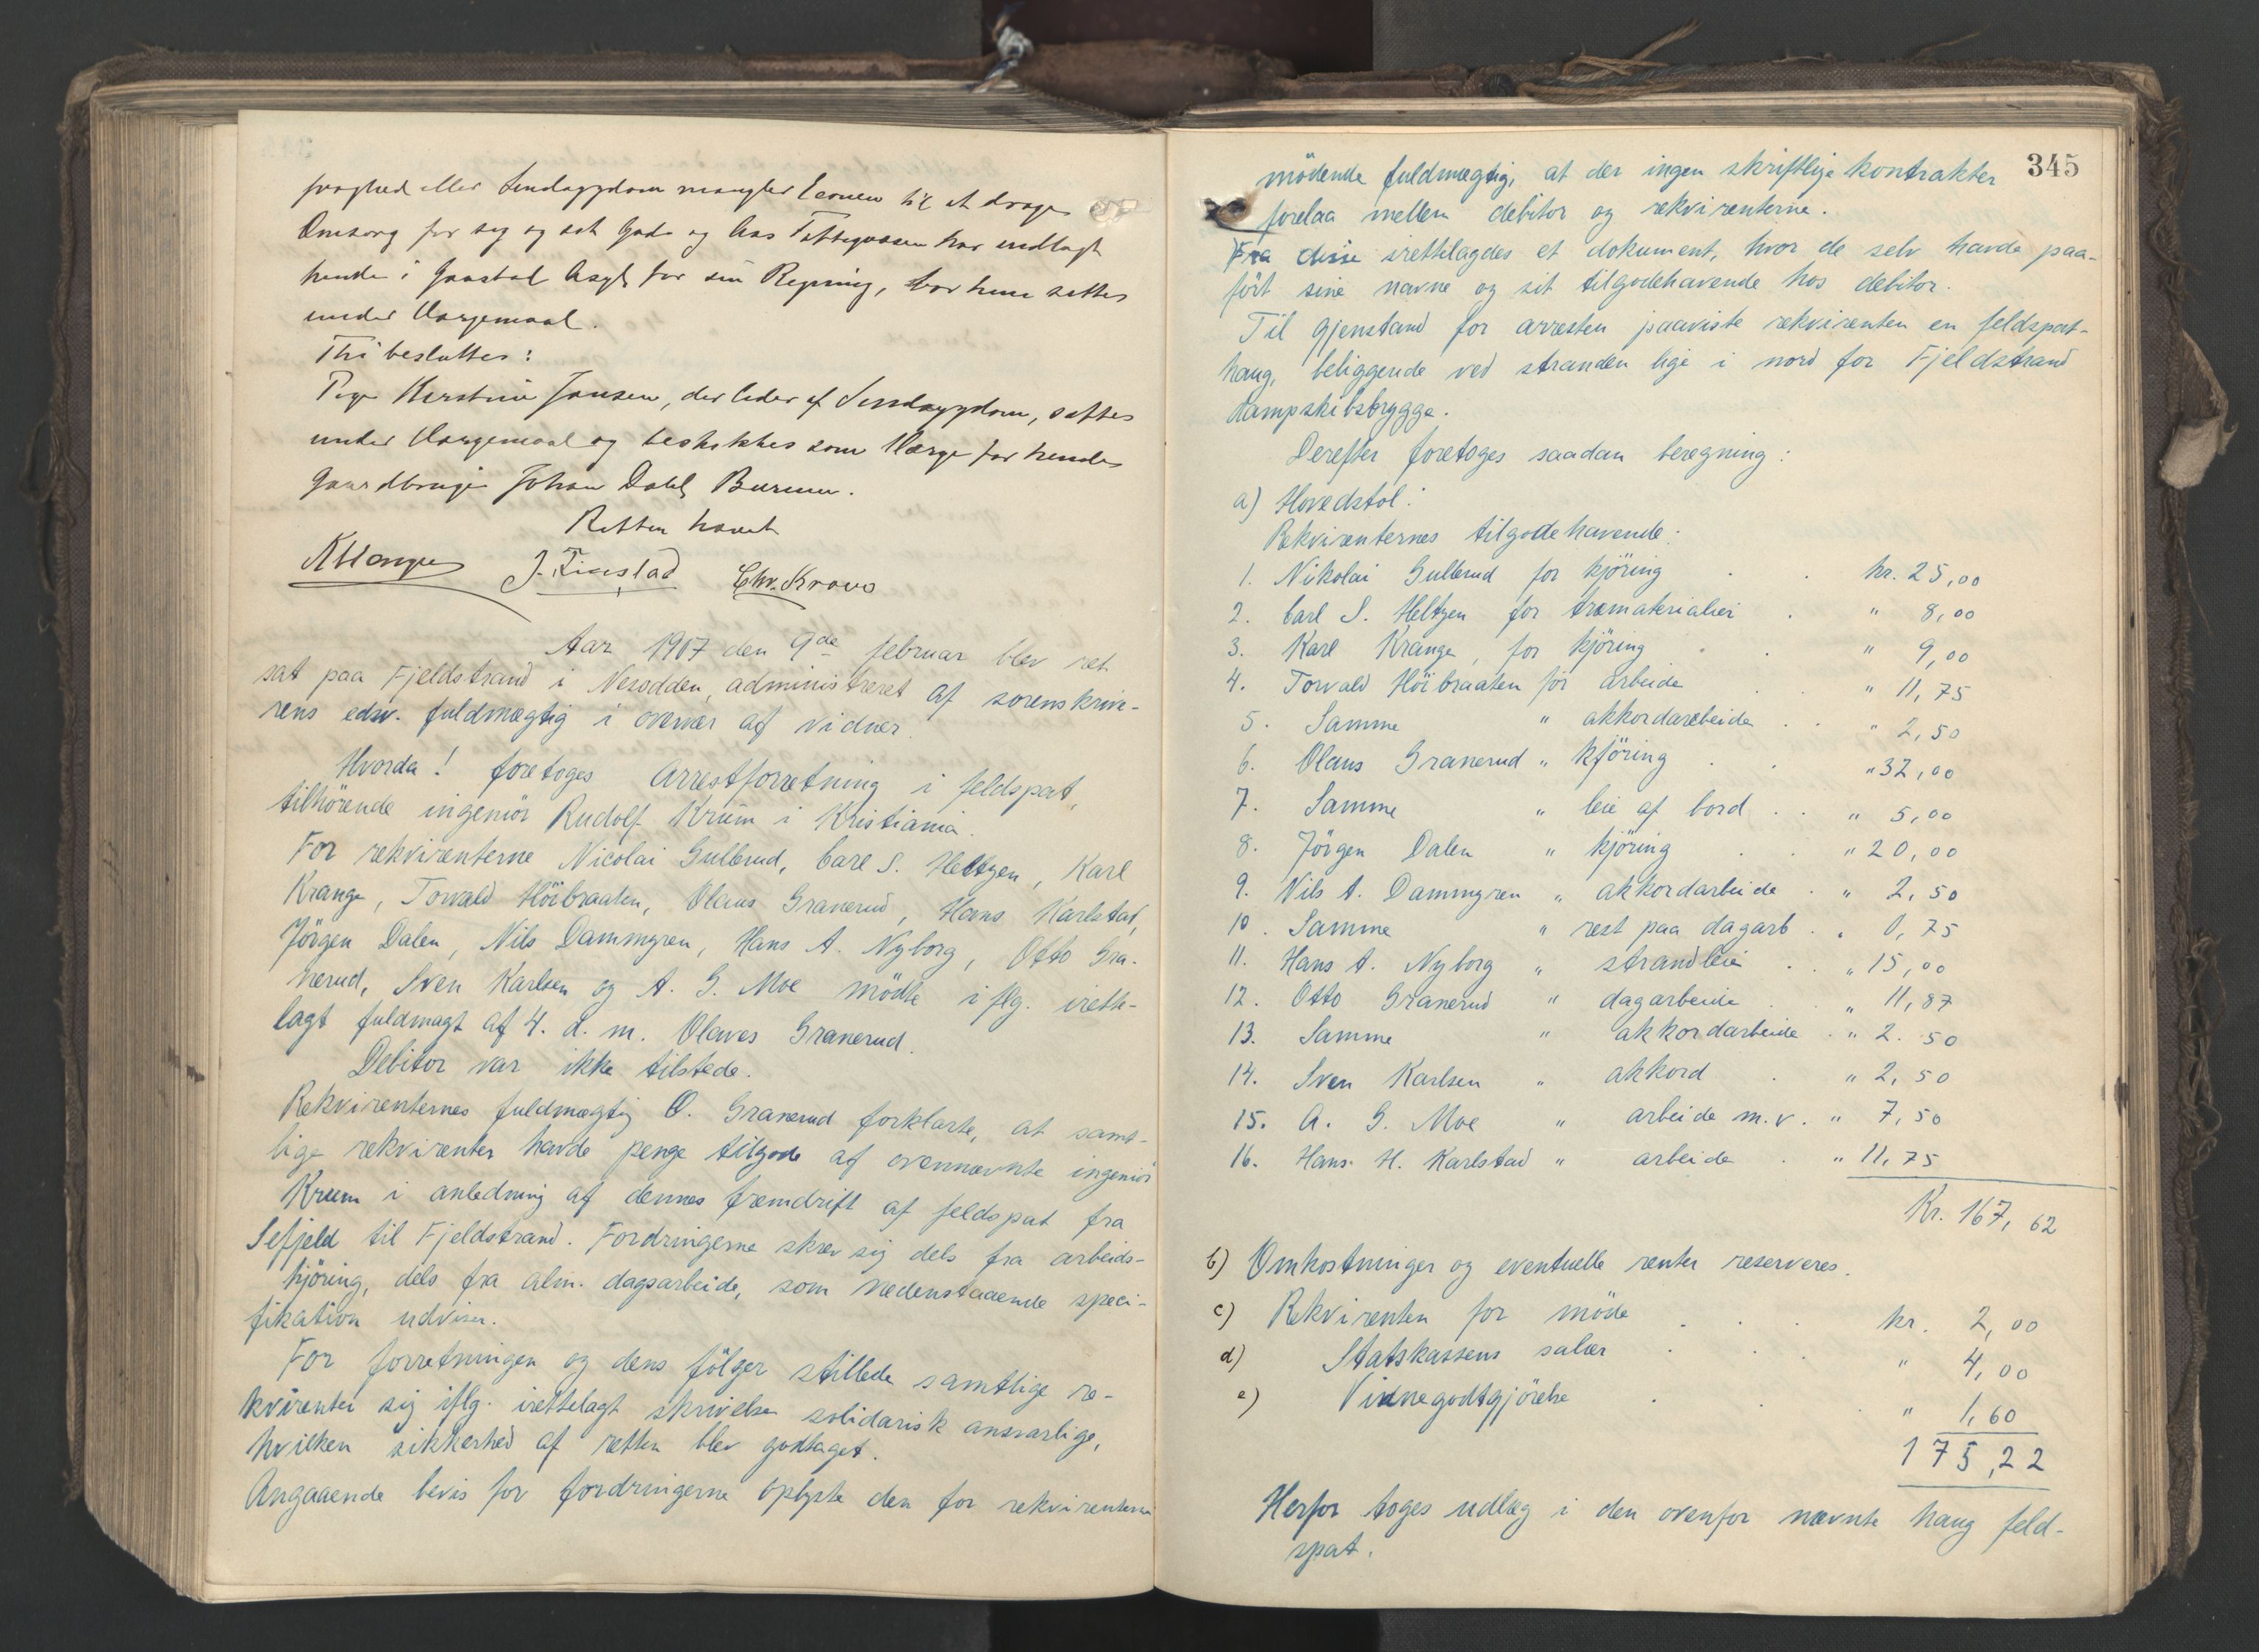 svaghed eller Sindssygdom mangler Evnen til at drage
Omsorg for sig og sit Gods og Aas Fattigvæsen har indlagt
hende i Gaustad Asyl for sin Regning, bør hun sættes
under Værgemaal.
Thi besluttes:
Pige Kirstine Jansen, der lider af Sindssygdom, sættes
under Værgemaal og beskikkes som Værge for hende
Gaardbruger Johan Dahl, Burum.
Retten hævet
J. Finstad Chr. Kraus
Aar 1907 den 9de februar blev ret
sat paa Fjeldstrand i Nesodden, administreret af sorenskrive-
rens edsv. fuldmægtig i overvær af vidner.
Hvorda! foretoges Arrestforretning i feldspat,
tilhörende ingeniör Rudolf Krüm i Kristiania.
For rekvirenterne Nicolai Gulbrud, Carl S. Heltzen, Karl
Krange, Torvald Höibraaten, Olaus Granerud, Hans Karlstad,
Jörgen Dalen, Nils Dammyren, Hans A. Nyborg, Otto Gra-
nerud, Sven Karlsen og A. G. Moe mödte iflg. irette-
lagt fuldmagt af 4. d. m. Olaves Granerud.
Debitor var ikke tilstede.
Rekvirenternes fuldmægtig O. Granerud forklarte, at samt-
lige rekvirenter havde penge tilgode af ovennævnte ingeniör
Krum i anledning af dennes fremdrift af feldspat fra
Sefjeld til Fjeldstrand. Fordringerne skrev sig dels fra arbeids-
kjöring, dels fra alm. dagsarbeide, som nedenstaaende speci-
fikation udviser.
For forretningen og dens fölger stillede samtlige re-
kvirenter sig iflg. irettelagt skrivelse solidarisk ansvarlige,
hvilken sikkerhed af retten blev godtaget.
Angaaende bevis for fordringerne oplyste den for rekvirenterne
345
mödende fuldmægtig, at der ingen skriftlige kontrakter
forelaa mellem debitor og rekvirenterne.
Fra disse irettelagdes et dokument, hvor de selv havde paa-
fört sine navne og sit tilgodehavende hos debitor.
Til gjenstand for arresten paaviste rekvirenten en feldspat-
haug, beliggende ved stranden lige i nord for Fjeldstrand
dampskibsbrygge.
Derefter foretoges saadan beregning:
a) Hovedstol:
Rekvirenternes tilgodehavende:
1. Nikolai Gulbrud for kjöring kr. 25,00
2. Carl S. Heltzen for træmaterialier " 8,00
3. Karl Krange, for kjöring " 9,00
4. Torvald Höibraaten for arbeide " 11,75
5. Samme " akkordarbeide " 2,50
6. Olaus Granerud " kjöring " 32,00
7. Samme " leie af bord " 5,00
8. Jörgen Dalen " kjöring " 20,00
9. Nils A. Dammyren " akkordarbeide " 2,50
10. Samme " rest paa dagarb. " 0,75
11. Hans A. Nyborg " strandleie " 15,00
12. Otto Granerud " dagarbeide " 11,87
13. Samme " akkordarbeide " 2.50
14. Sven Karlsen " akkord " 2,50
15. A. G. Moe " arbeide m.v. " 7,50
16. Hans H. Karlstad " arbeide " 11,75
Kr. 167,62
b) Omkostninger og eventuelle renter reserveres.
c) Rekvirenten for möde kr. 2,00
d) Statskassens salær " 4,00
e) Vidnegodtgjörelse " 1,60
175,22
Herfor toges udlæg i den ovenfor nævnte haug feld-
spat.